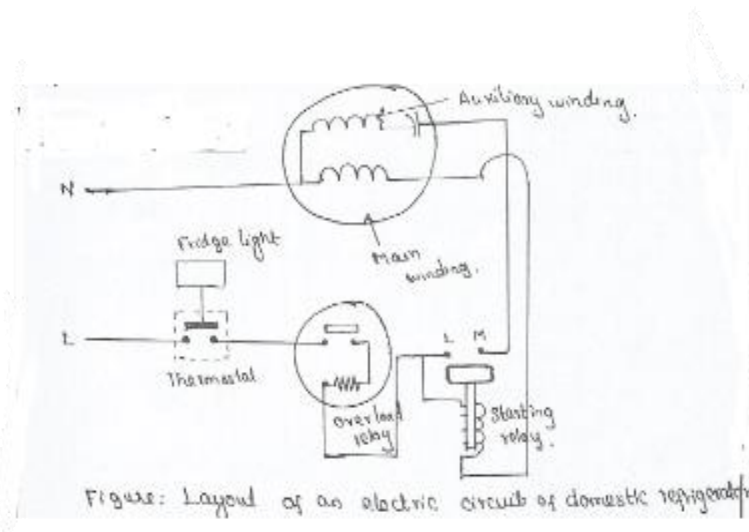 Auxiliary winding.
N
Fridge light
Main
winding.
L
L M
Thermostat
Overload
relay
Starting
relay.
Figure: Layout of an electric circuit of domestic refrigerator